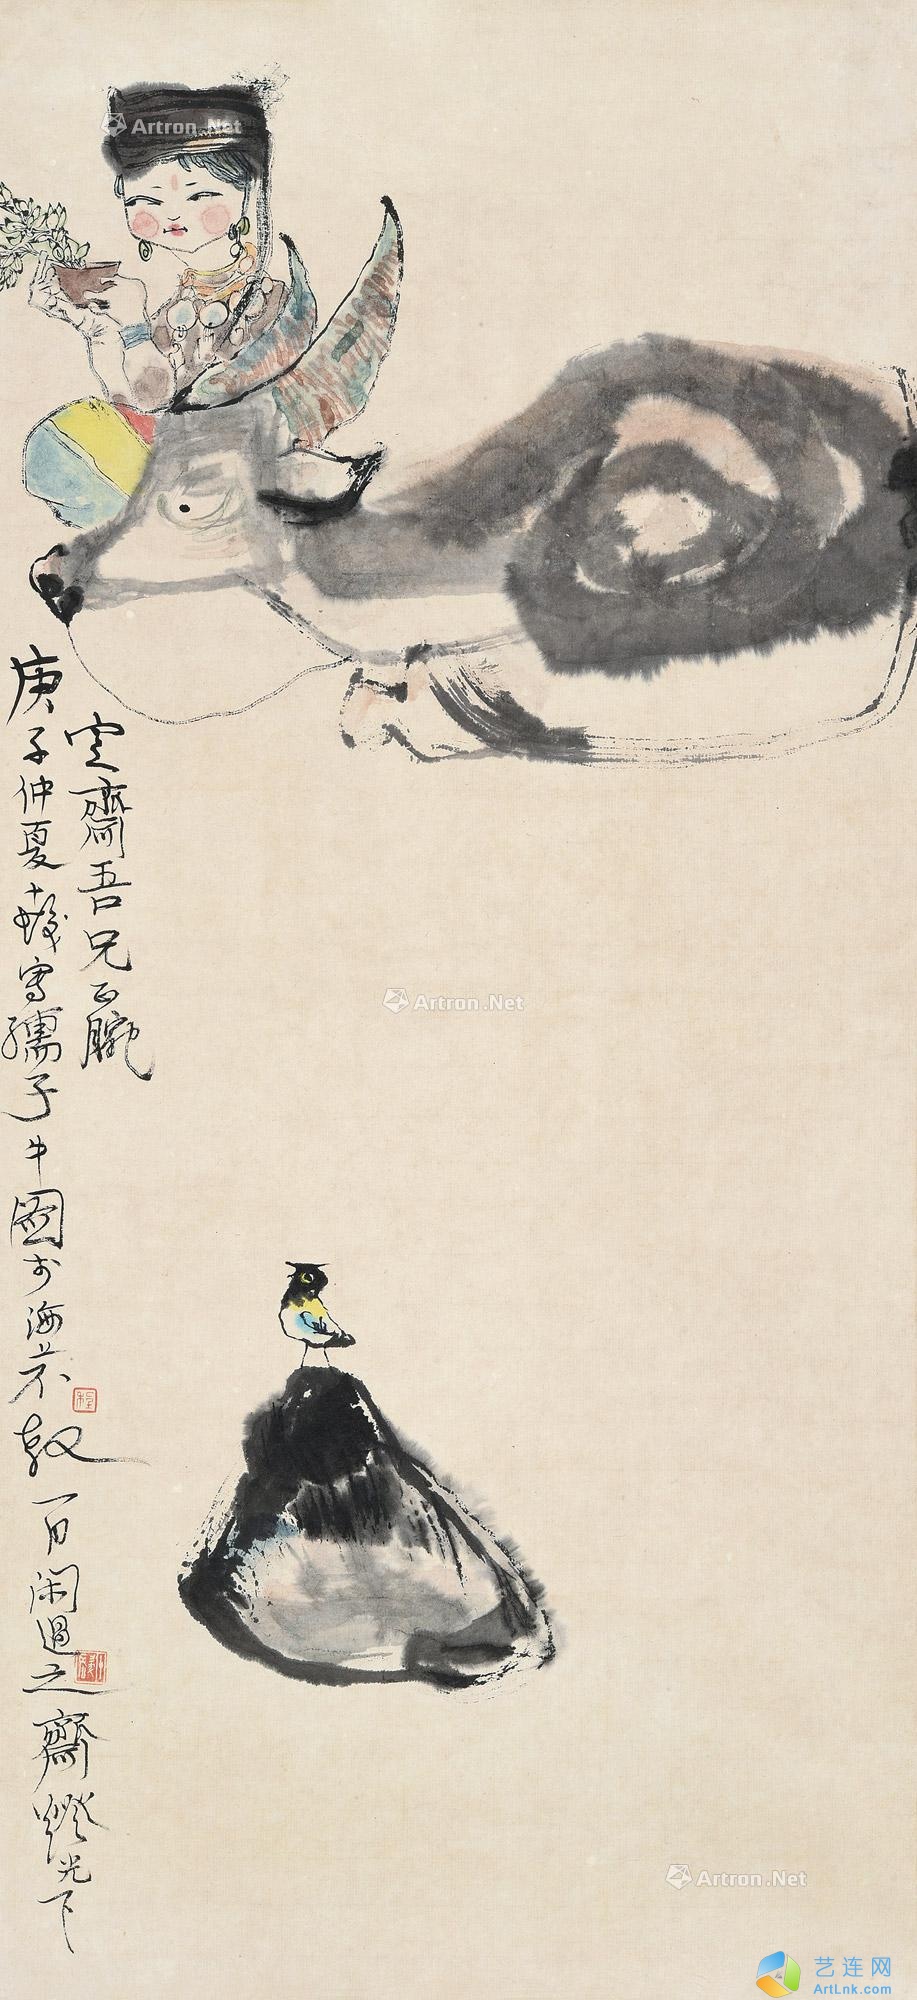 Artron.Net
空齋吾兄正腕
庚子仲夏十髮写孺子牛圖於海上不教一日閑過之齋燈光下
程
Artron.Net
Artron.Net
艺连网
ArtLnk.com